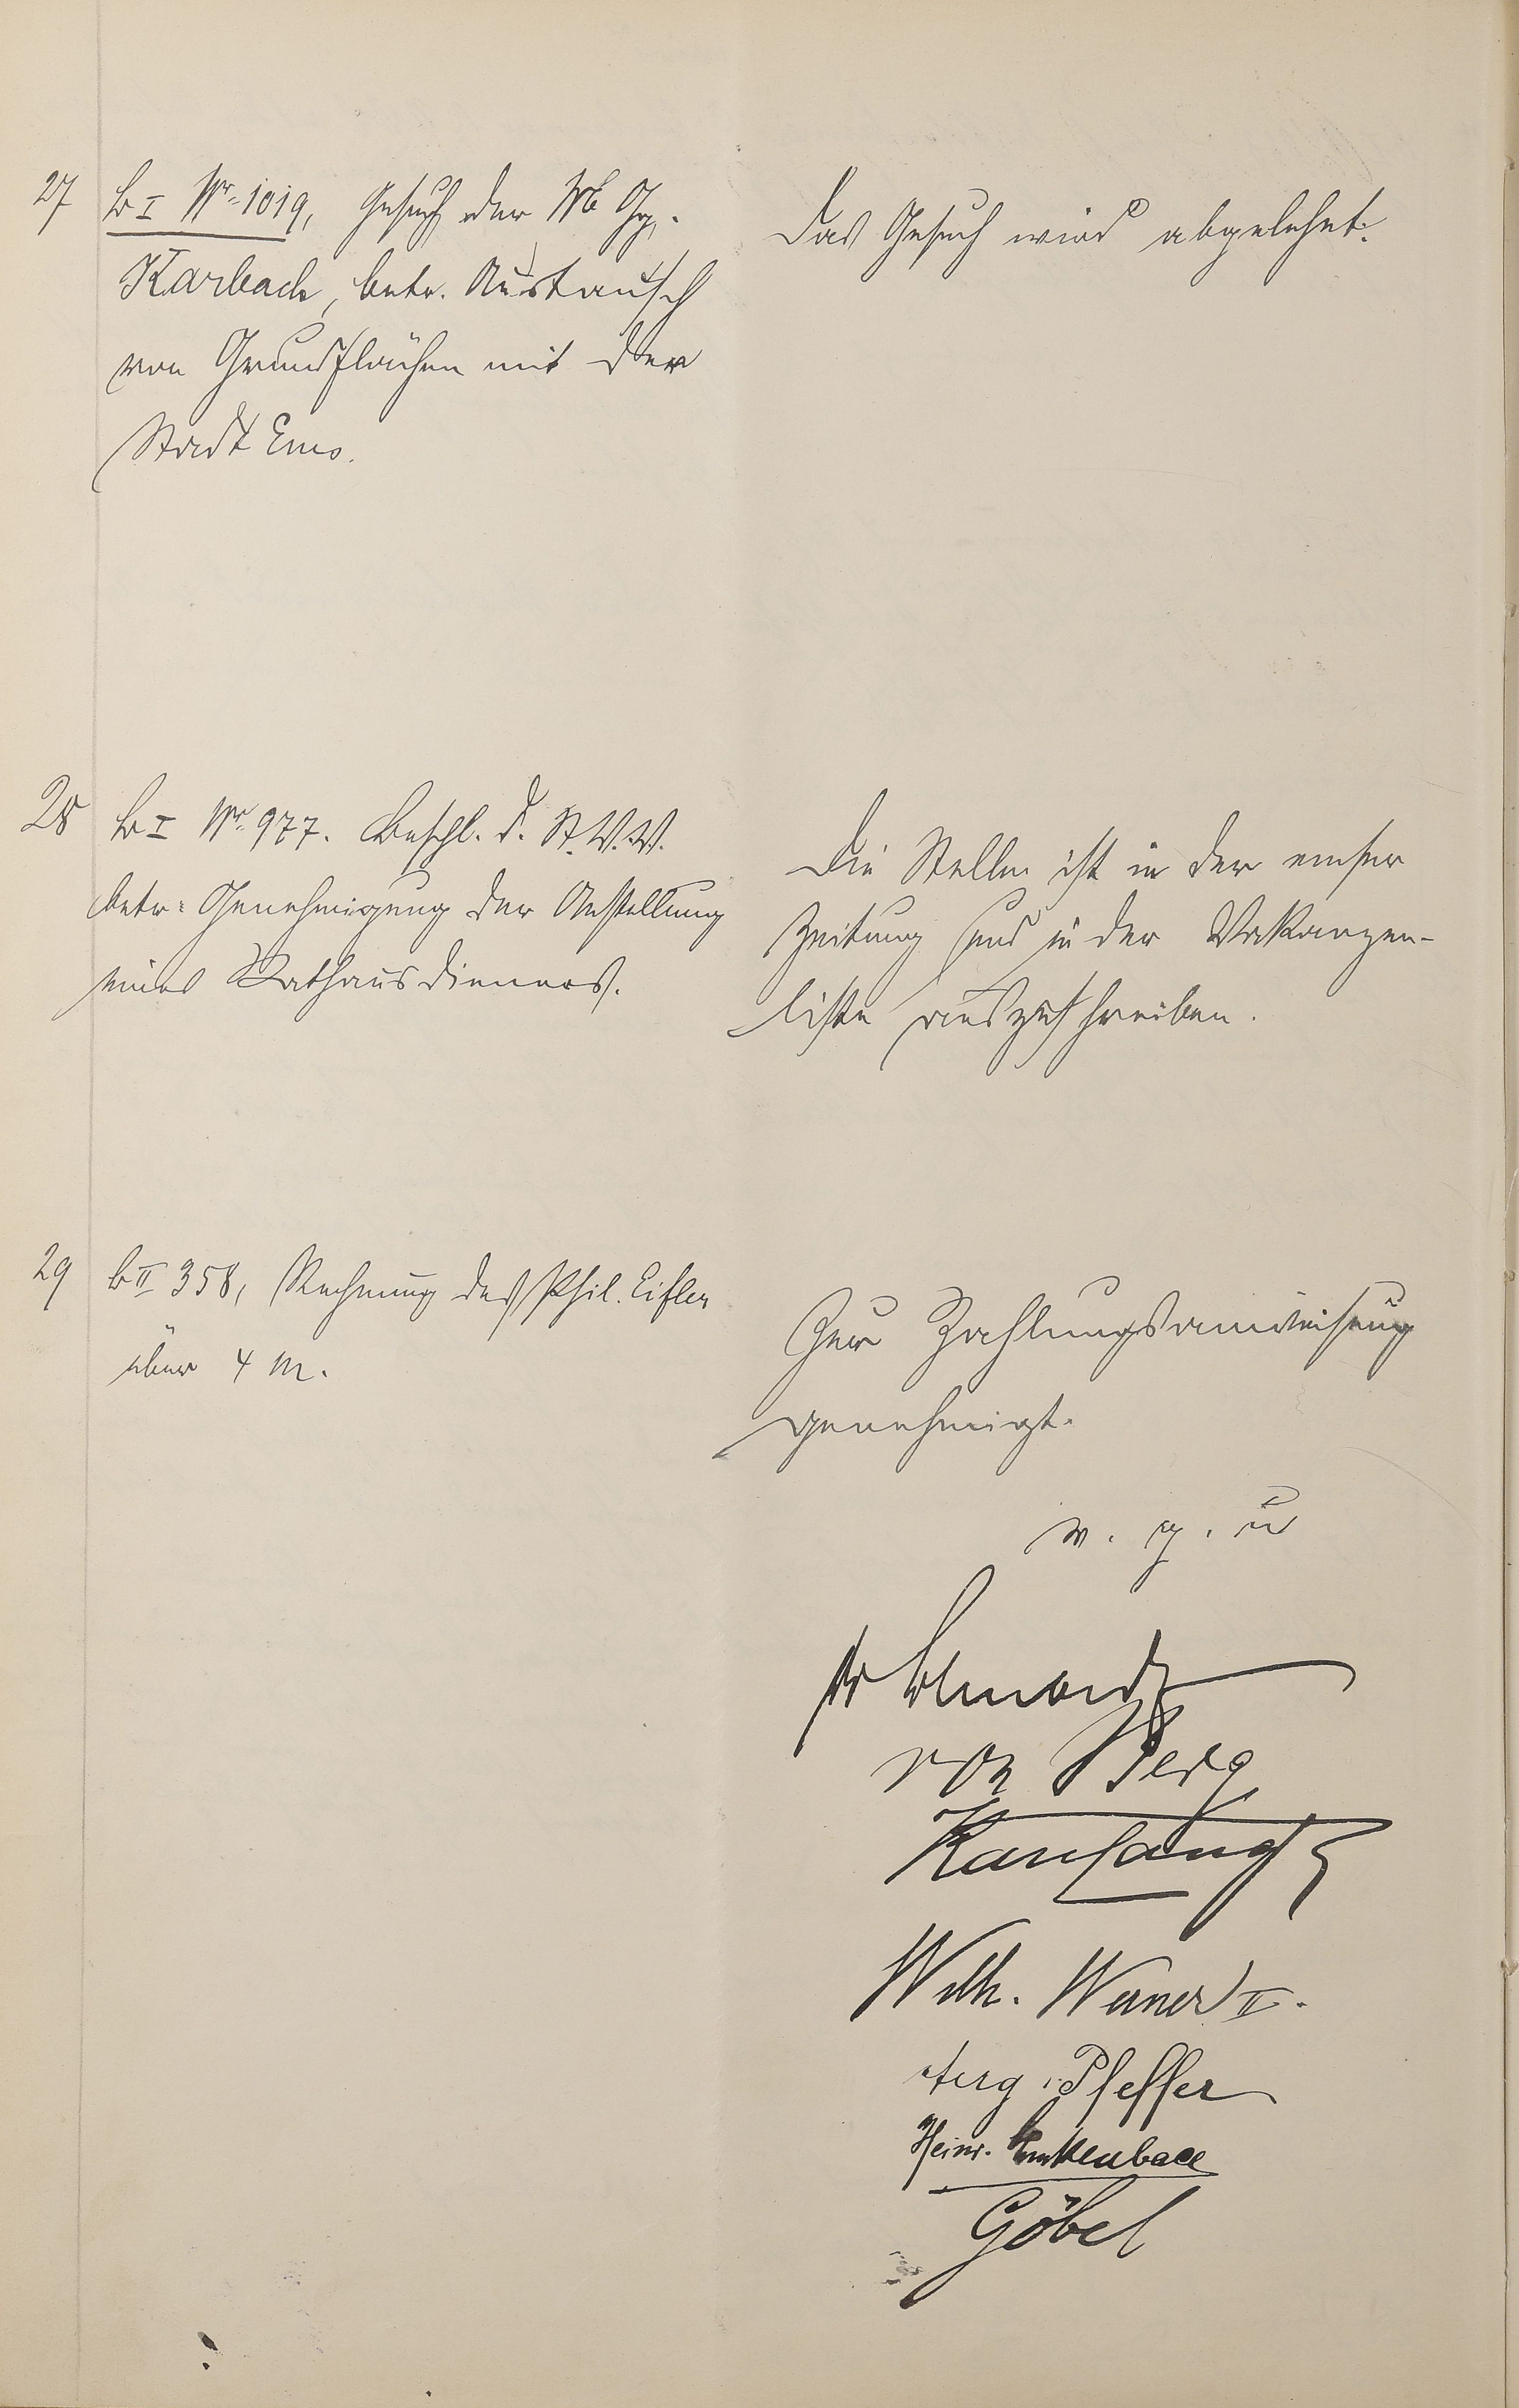 27 b I Nr. 1019, Gesuch der Wb Gg.
Karbach, betr. Austausch
von Grundflächen mit der
Stadt Ems.
Das Gesuch wird abgelehnt.
28 b I Nr. 977. Beschl. d. St. V. V.
betr. Genehmigung der Anstellung
eines Rathausdieners.
Die Stelle ist in der emser
Zeitung und in der Vakanzen-
liste auszuschreiben.
29 b II 358, Rechnung des Phil. Eifler
über 4 M.
Zur Zahlungsanweisung
genehmigt.
v. g. u
von Berg
Wilh. Werner II.
Pfeffer
Heinr.
Göbel